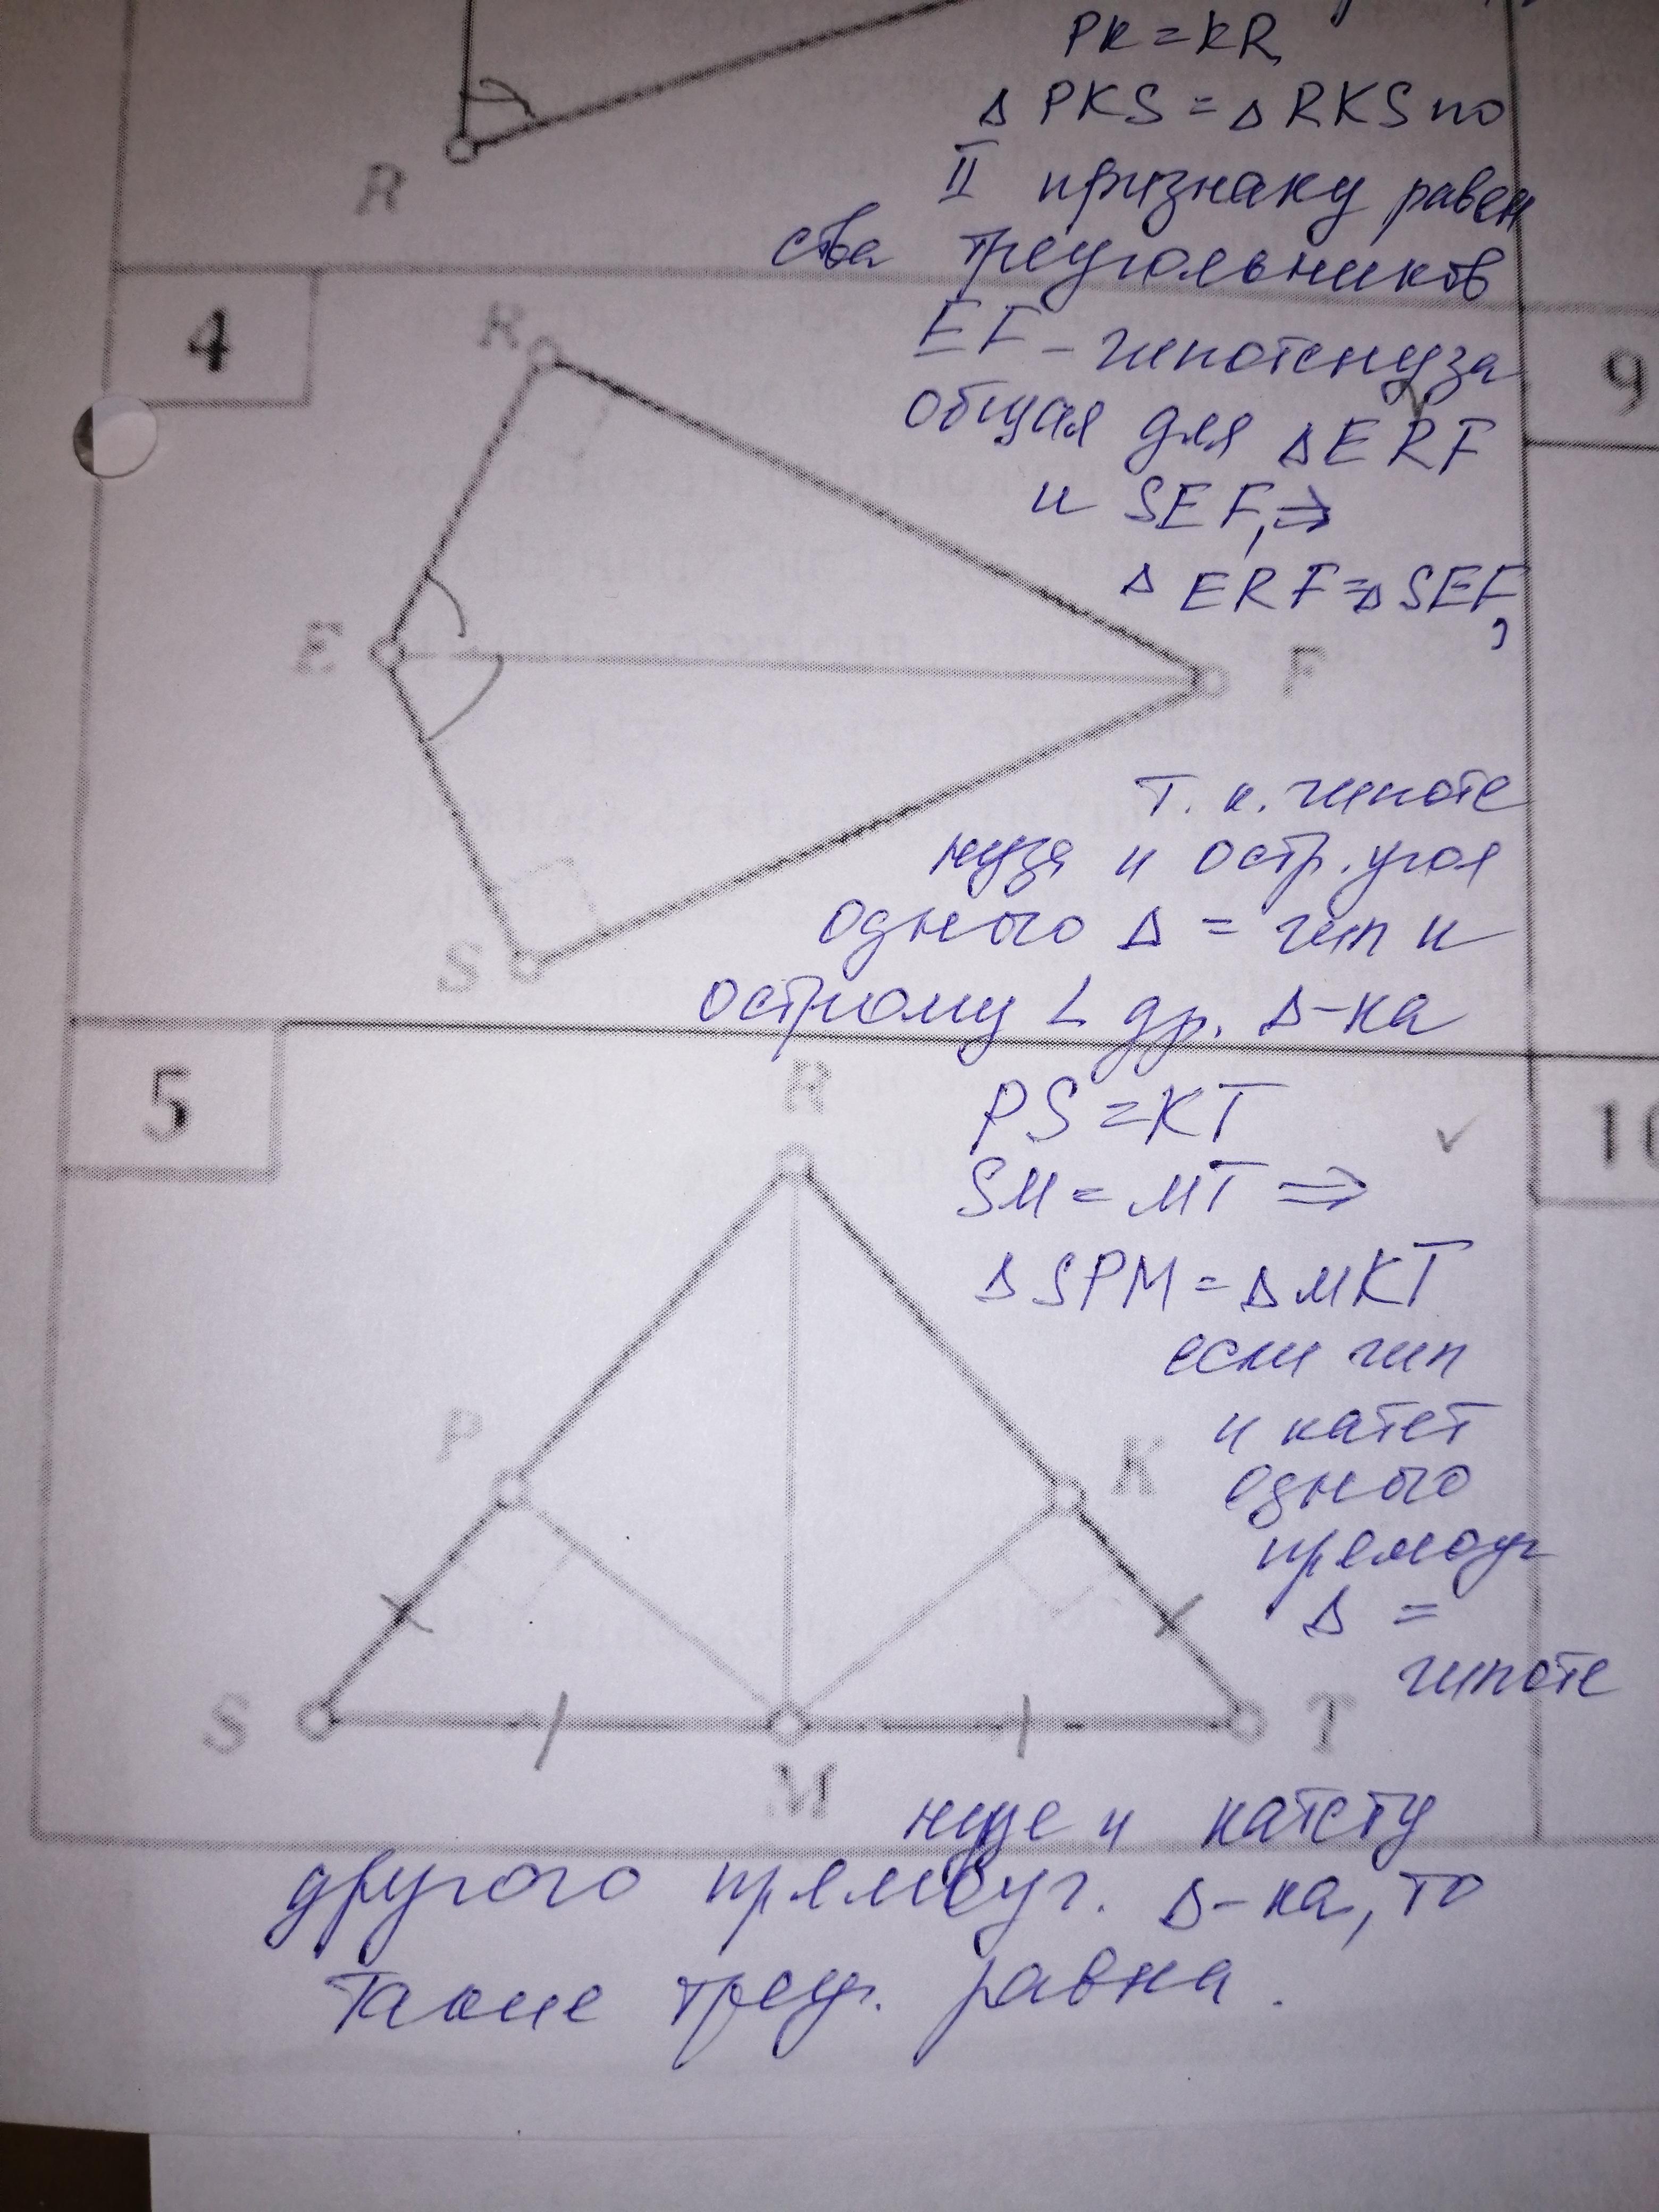 PK = KR
R
Δ PKS = Δ RKS по
II признаку равен
ства треугольников
4
R
EF - гипотенуза
9
общая для Δ ERF
и SEF, ⇒
Δ ERF = Δ SEF,
E
F
т. к. гипоте
нуза и остр. угол
одного Δ = гип и
S
острому ∠ др. Δ-ка
5
R
PS = KT
10
SM = MT ⇒
Δ SPM = Δ MKT
если гип
P
и катет
K
одного
прямоуг
Δ =
гипоте
S
T
M
нузе и катету
другого прямоуг. Δ-ка, то
такие треуг. равна.